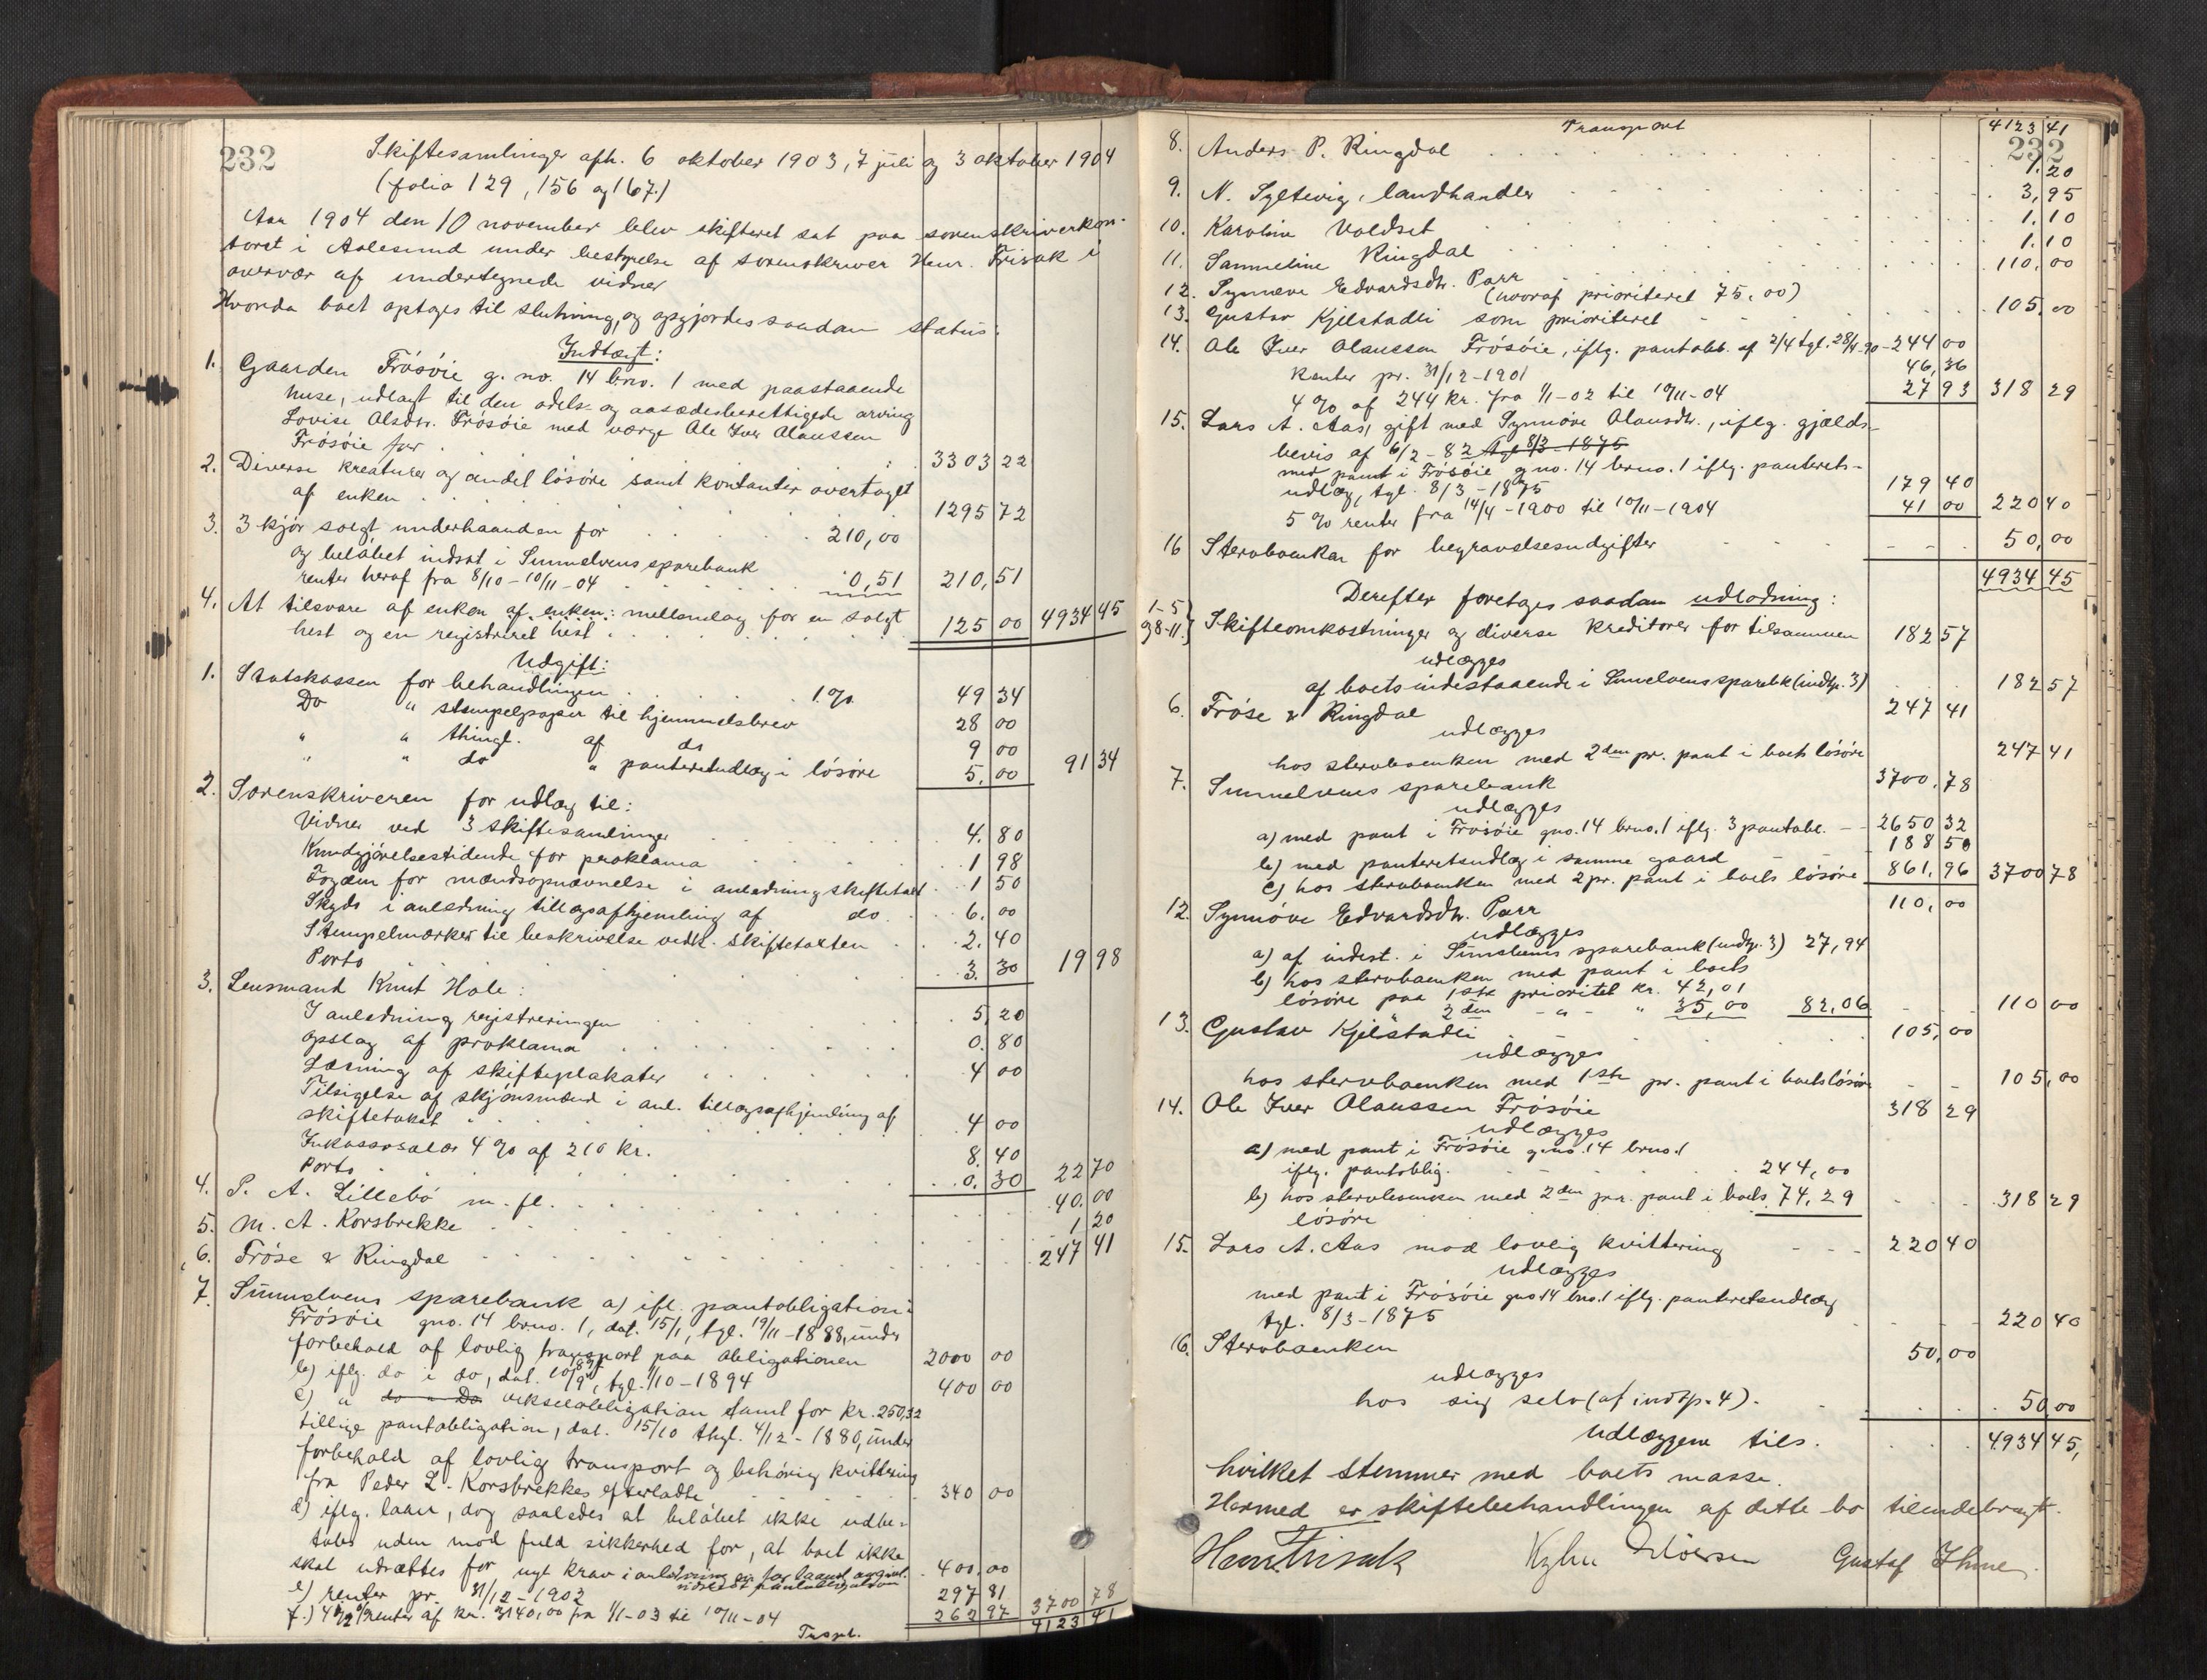 232
Skiftesamlinger afh. 6 oktober 1903, 7 juli og 3 oktober 1904
(folio 129, 156 og 167.)
Aar 1904 den 10 november blev skifteret sat paa sorenskriverkon-
toret i Aalesund under bestyrelse af sorenskriver Henr. Frisak i
overvær af undertegnede vidner
Hvorda boet optoges til slutning, og opgjordes saadan status:
Indtægt:
1. Gaarden Frösöie g. no. 14 brno. 1 med paastaaende
huse, udlagt til den odels- og aasædesberettigede arving
Lovise Olsdtr. Frösöie med værge Ole Iver Olaussen
Frösöie for . 3303 22
2. Diverse kreaturer og andel lösöre samt kontanter overtaget
af enken . . . 1295 72
3. 3 kjör solgt underhaanden for . . . 210,00
og belöbet indsat i Sunnelvens sparebank
renter heraf fra 8/10 - 10/11 - 04 . . . 0,51 210,51
4. At tilsvare af enken af enken: mellemlag for en solgt
hest og en registreret hest . . . 125 00 4934 45
Udgift:
1. Statskassen for behandlingen . . . 1 % 49 34
Do " stempelpapir til hjemmelsbrev 28 00
" " thingl. af do 9 00
" " do " panteretudlæg i lösöre 5,00 91 34
2. Sorenskriveren for udlæg til:
Vidner ved 3 skiftesamlinger . . . 4.80
Kundgjörelsestidende for proklama . . . 1 98
Fogden for mændsopnævnelse i anledning skiftetaxt . 1 50
Skyds i anledning tillægsafhjemling af do . . 6.00
Stempelmærker til beskrivelse vedk. skiftetaxten . . 2.40
Porto . . . 3.30 19 98
3. Lensmand Knut Hole:
I anledning registreringen . . . 5,20
Opslag af proklama . . . 0.80
Læsning af skifteplakater . . . 4 00
Tilsigelse af skjönsmænd i anl. tillægsafhjemling af
skiftetakst . . . 4 00
Inkassosalær 4 % af 210 kr. 8.40
Porto . . . 0.30 22 70
4. P. A. Lillebö m. fl. . . . 40.00
5. M. A. Korsbrekke . . . 1 20
6. Fröse & Ringdal . . . 247 41
7. Sunnelvens sparebank a) ifl. pantobligation i
Frösöie gno. 14 brno. 1, dat. 15/1, tgl. 19/11 - 1888, under
forbehold af lovlig transport paa obligationen 2000 00
b) iflg. do i do, dat. 10/9, tgl. 1/10 - 1894 400 00
c) " do " Do vekselobligation samt for kr. 250,32
tillige pantobligation, dat. 15/10 thgl. 4/12 - 1880, under
forbehold af lovlig transport og behörig kvittering
fra Peder L. Korsbrekkes efterladte . . . 340 00
d) iflg. laan, dog saaledes at belöbet ikke udbe-
tales uden mod fuld sikkerhed for, at boet ikke
skal udsættes for nyt krav i anledning 400,00
e) renter pr. 31/12 - 1902 297 81
f.) 4 1/2 % renter af kr. 3140,00 fra 1/1 - 03 til 10/11 - 04 262 97 3700 78
Trspt. 4123 41
Transport 4123 41
232
8. Anders P. Ringdal . . . 1.20
9. N. Syltevig, landhandler . . . 3,95
10. Karoline Voldset . . . 1.10
11. Sammeline Ringdal . . . 1.10
12. Synnöve Edvardsdtr. Parr 110,00
(hvoraf prioriteret 75,00)
13. Gustav Kjelstadli som prioriteret . . . 105,00
14. Ole Iver Olaussen Frösöie, iflg. pantobl. af 2/4 tgl. 28/4 - 90 - 244 00
Renter pr. 31/12 - 1901 46,36
4 % af 244 kr. fra 1/1 - 02 til 10/11 - 04 27 93 318 29
15. Lars A. Aas, gift med Synnöve Olausdtr., iflg. gjælds-
bevis af 6/2 - 82 tgl. 8/3 - 1875
med pant i Frösöie gno. 14 brno. 1 iflg. panterets-
udlæg, tgl. 8/3 - 1875 179 40
5 % renter fra 14/4 - 1900 til 10/11 - 1904 41 00 220 40
16 Stervboenken for begravelsesudgifter . . . 50,00
4934 45
Derefter foretoges saadan udlodning:
1-5
og 8-11.} Skifteomkostninger og diverse kreditorer for tilsammen 182 57
udlægges
af boets indestaaende i Sunnelvens sparebk (indtp. 3) 182 57
6. Fröse & Ringdal 247 41
udlægges
hos stervboenken med 2den pr. pant i boets lösöre 247 41
7. Sunnelvens sparebank 3700,78
udlægges
a) med pant i Frösöie gno. 14 brno. 1 iflg. 3 pantobl. - - 2650 32
b) med panteretsudlæg i samme gaard - 188 50
c) hos stervboenken med 2 pr. pant i boets lösöre 861,96 3700 78
12. Synnöve Edvardsdtr. Parr 110,00
udlægges
a) af indest. i Sunnelvens sparebank (indtp. 3) 27,94
b) hos stervboenken med pant i boets
lösöre paa 1ste prioritet kr. 42,01
2den - " - " 35,00 82,06 110 00
13. Gustav Kjelstadli . . . 105,00
udlægges
hos stervboenken med 1ste pr. pant i boets lösöre - - 105,00
14. Ole Iver Olaussen Frösöie 318 29
udlægges
a) med pant i Frösöie gno. 14 brno. 1
iflg. pantoblig. . . . 244,00
b) hos stervboenken med 2den pr. pant i boets 74,29 . . . 318 29
lösöre
15. Lars A. Aas mod lovlig kvittering - - - 220 40
udlægges
med pant i Frösöie gno 14 bno. 1 iflg. panteretsudlæg
tgl. 8/3 - 1875 220 40
16. Stervboenken 50,00
udlægges
hos sig selv (af indtp. 4). . . . 50,00
Udlæggene tils. . . . 4934 45,
hvilket stemmer med boets masse.
Hermed er skiftebehandlingen af dette bo tilendebragt.
Henr Frisak Gustaf Ihme